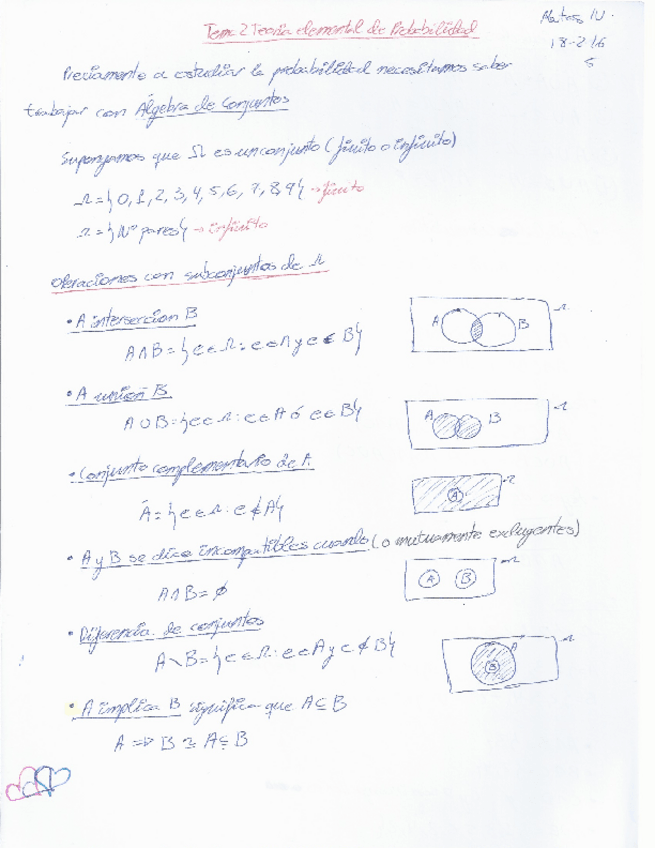 Mates IV.
18-2-16
5
Tema 2 Teoría elemental de Probabilidad
Previamente a estudiar la probabilidad necesitamos saber
trabajar con Álgebra de Conjuntos
Supongamos que Ω es un conjunto (finito o infinito)
Ω = {0, 1, 2, 3, 4, 5, 6, 7, 8, 9} → finito
Ω = {Nº pares} → infinito
Operaciones con subconjuntos de Ω
• A interseccion B
A∩B = {e∈Ω : e∈A y e∈B}
A B Ω
• A unión B.
A∪B = {e∈Ω : e∈A ó e∈B}
A B Ω
• Conjunto complementario de A.
Ā = {e∈Ω : e∉A}
A Ω
• A y B se dice incompatibles cuando (o mutuamente excluyentes)
A∩B = ∅
A B Ω
• Diferencia de conjuntos
A∖B = {e∈Ω : e∈A y e∉B}
A B Ω
• A implica B significa que A⊆B
A => B ≃ A⊆B